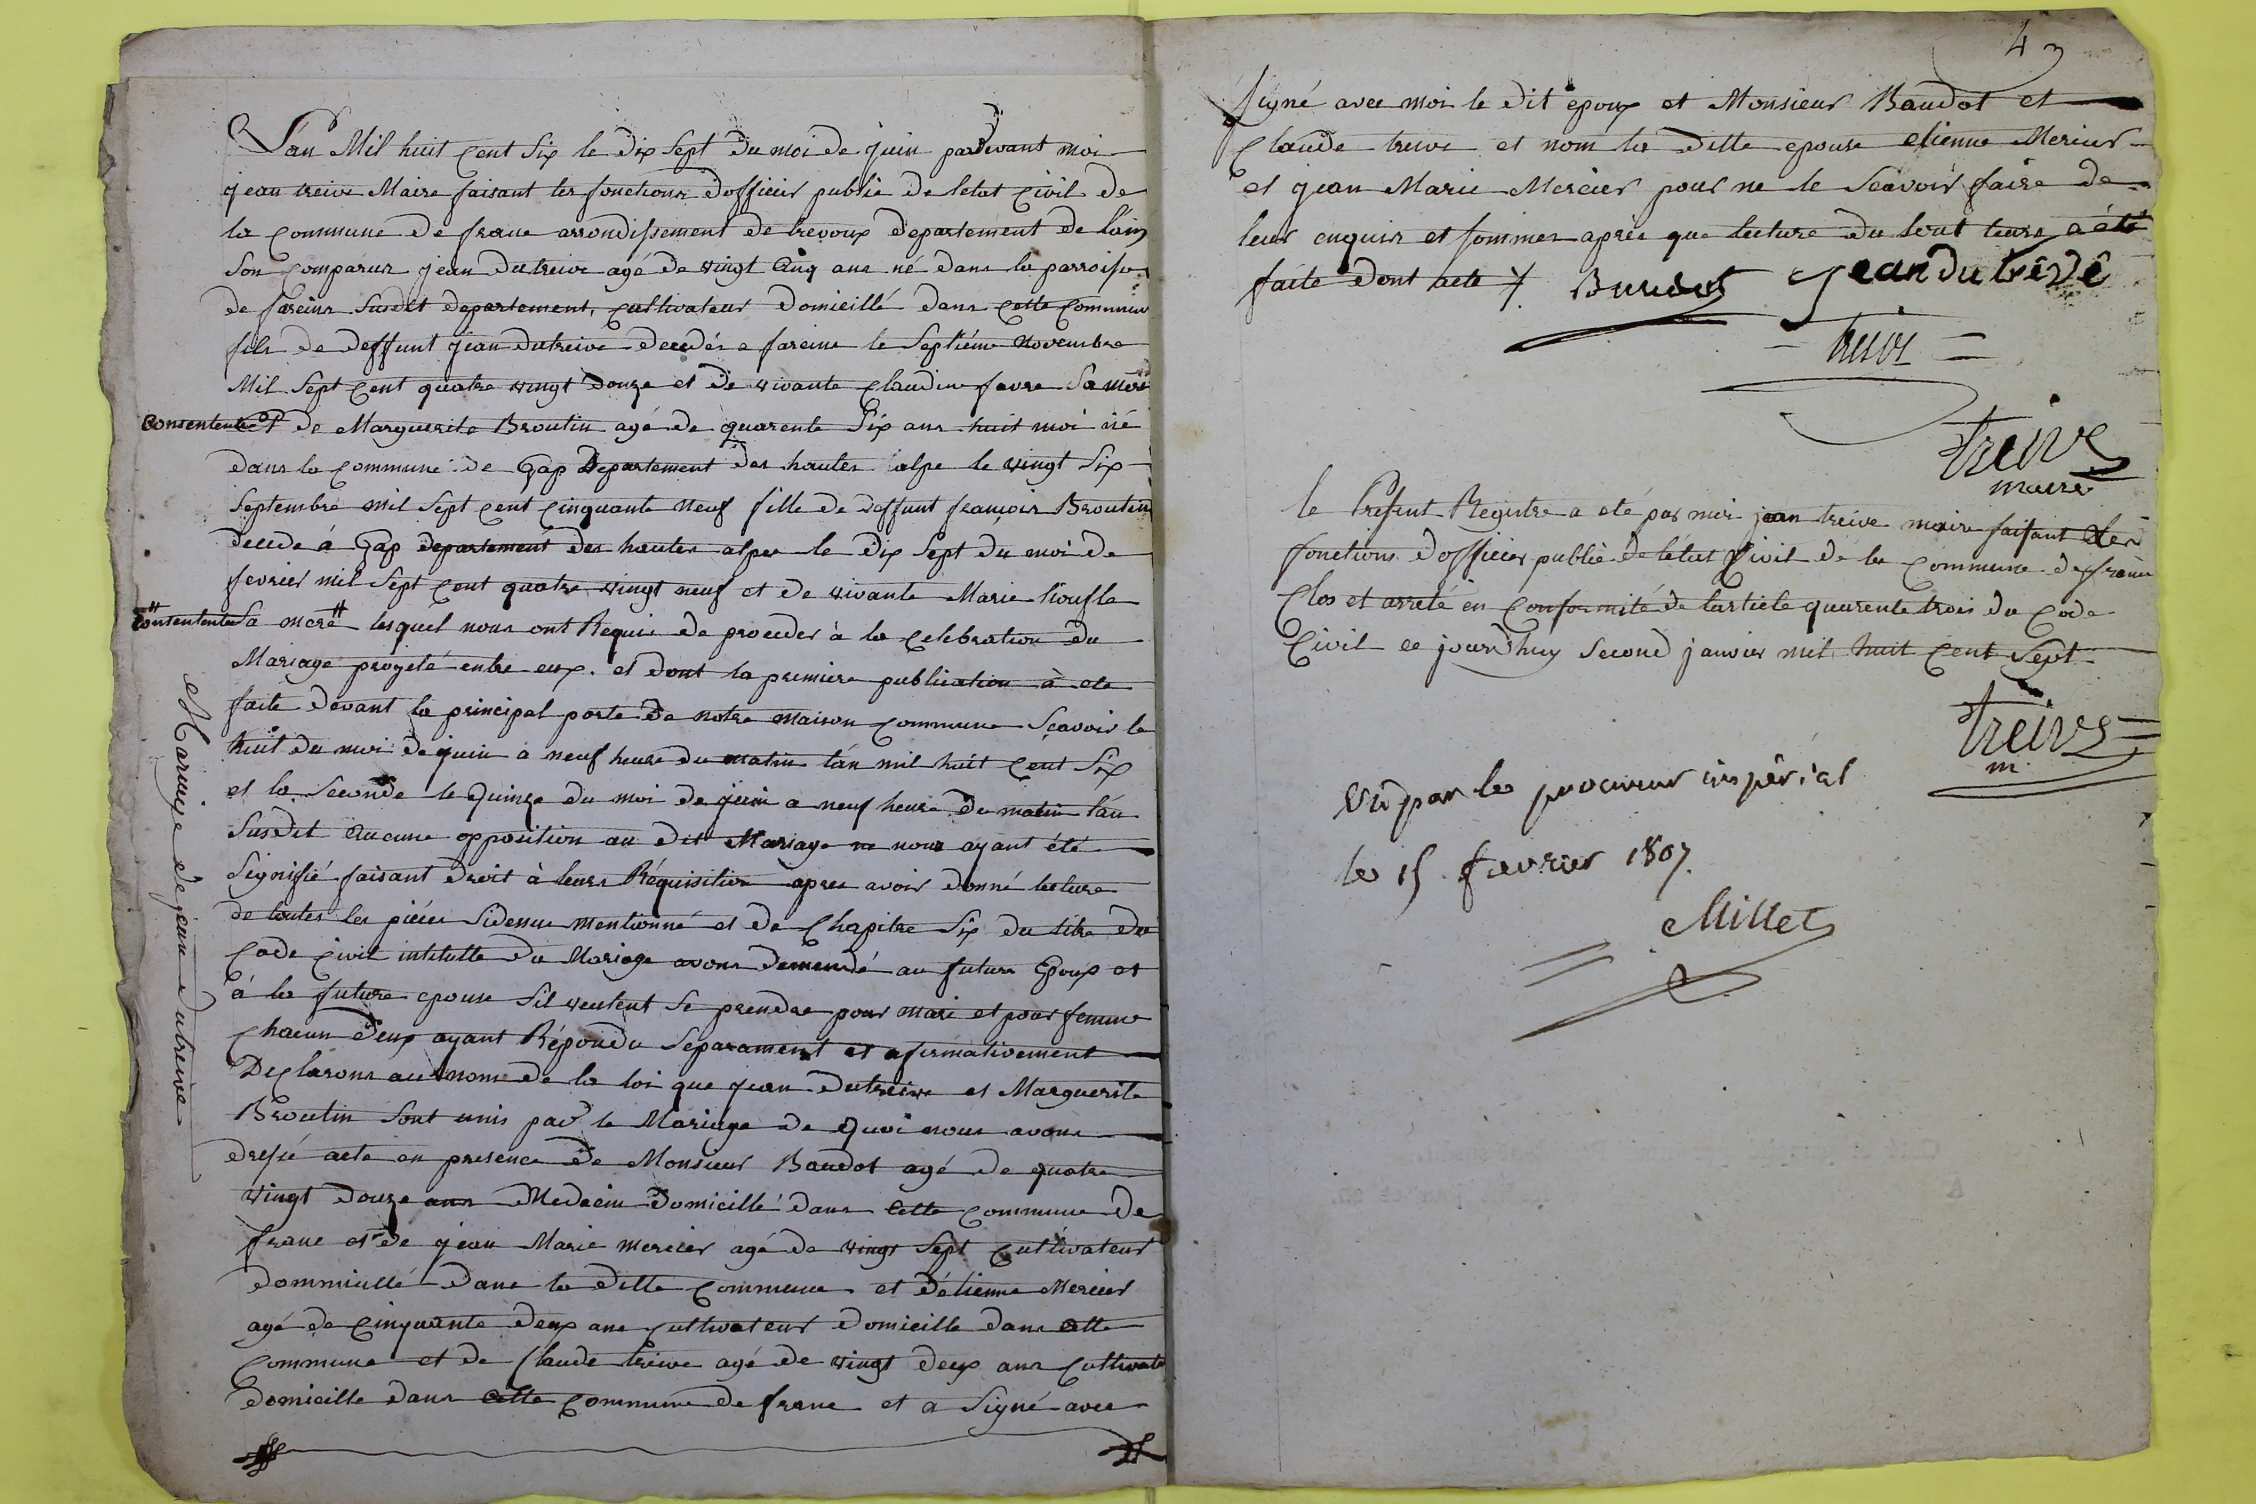 Lán Mil huit Cent Six le dix Sept du moi de juin pardevant moi
jean treive Maire faisant les fonctions dofficier public de letat Civil de
la Commune de franc arrondissement de trevoux departement de láin
Son Comparus jean dutreive agé de vingt Cinq ans né dans la parroisse
de fareins Susdit departement, cultivateur domicillé dans cette Commune
fils de deffunt jean dutreive decedés a fareins le Septiéme Novembre
Mil Sept Cent quatre vingt douze et de vivante Claudine favre Sa mère
Consentente et de Marguerite Broutin agé de quarente Six ans huit moi né
dans la Commune de Gap Departement des hautes alpe le vingt Six
Septembre mil Sept Cent Cinquante Neuf fille de deffunt françois Broutin
decedé á Gap departement des hautes alpes le dix Sept du moi de
fevrier mil Sept Cent quatre vingt neuf et de vivante Marie
Consentente Sa mere lesquel nous ont Requis de proceder à la Celebration du
Mariage progeté entre eux. et dont la premiere publication à eté
faite devant la principal porte de notre Maison Commune Sçavoir le
huit du moi de juin a neuf heure du matin lán mil huit Cent Six
et la Seconde le Quinze du moi de juin a neuf heure du matin lán
Susdit Aucune opposition au dit Mariage ne nous ayant été
Signifié faisant droit à leurs Réquisition apres avoir donné lecture
de toutes les piéces Sidessus mentionné et de Chapitre Six du titre du
Code Civil intitulle du Mariage avons demendé au futur Epoux et
á la future epouse Sil veulent Se prendre pour mari et pour femme
Chacun deux ayant Répondu Séparament et afirmativement
Declarons au nom de la loi que jean dutreive et Marguerite
Broutin Sont unis par le Mariage de Quoi nous avons
dressé acte en presence de Monsieur Baudot agé de quatre
vingt douze ans Medecin domicillé dans Cette Commune de
franc et de jean Marie mercier agé de vingt Sept Cultivateur
dommicillé dans la ditte Commune et détienne Mercier
agé de Cinquante deux ans Cultivateur domicille dans Cette
Commune et de Claude treive agé de vingt deux ans Cultivate
domicille dans Cette Commune de franc et a Signé avec
Mariage de jean dutreive
4
Signé avec moi le dit epoux et Monsieur Baudot et
Claude treive et nom la ditte epouse etienne Mercier
et jean Marie Mercier pour ne le Scavoir faire de
leur enquis et sommer aprés que lecture du tout leurs a été
faite dont acte
Baudot jean du treve
treive
treive
maire
le Present Registre a eté par moi jean treive maire faisant les
fonctions dofficier public de létat Civil de la Commune de franc
Clos et arreté en Conformité de larticle quarente trois du Code
Civil ce jourdhuy Second janvier mil huit Cent Sept
treive
m
Vu par le procureur impérial
le 15 fevrier 1807.
Millet